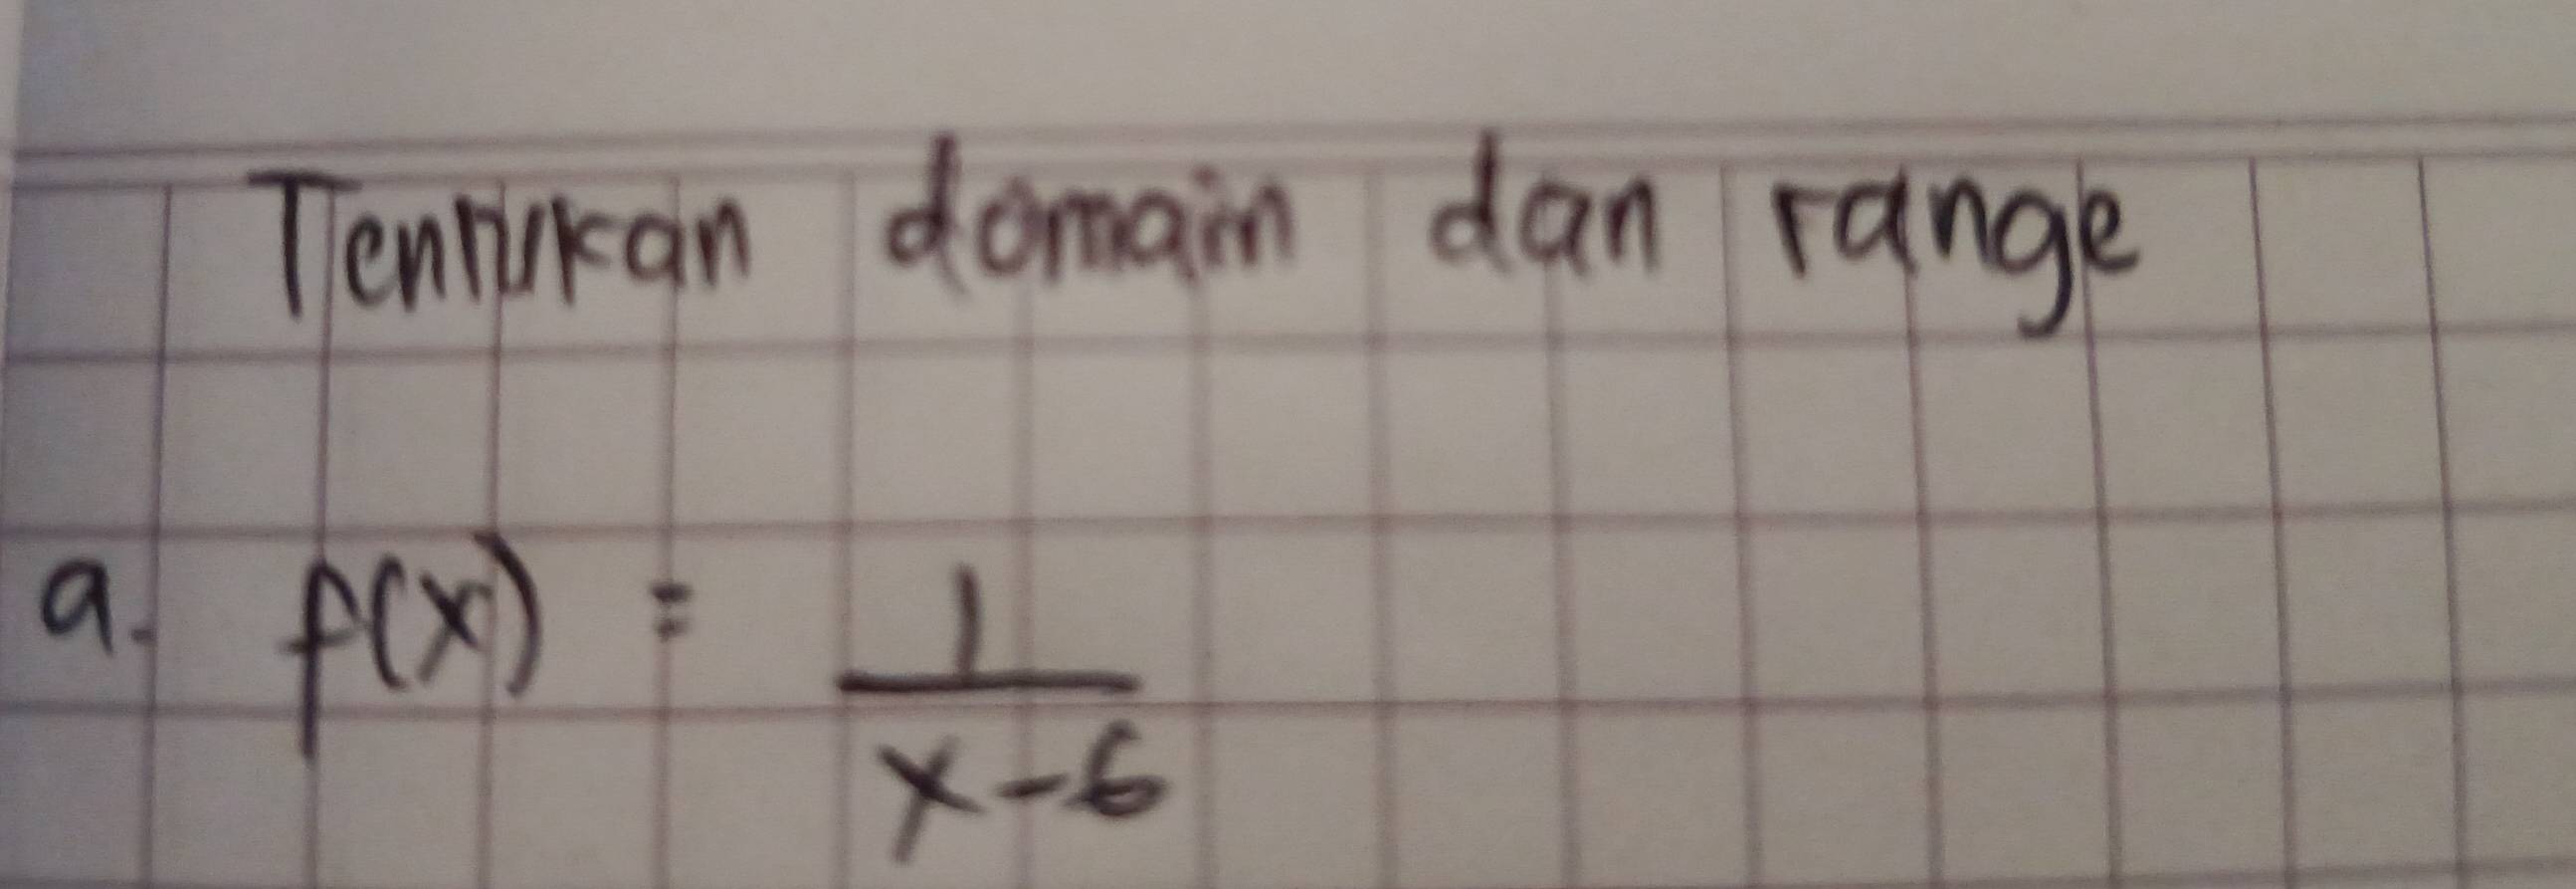 Tentukan domain dan range
a. f(x) = 1/(x-6)